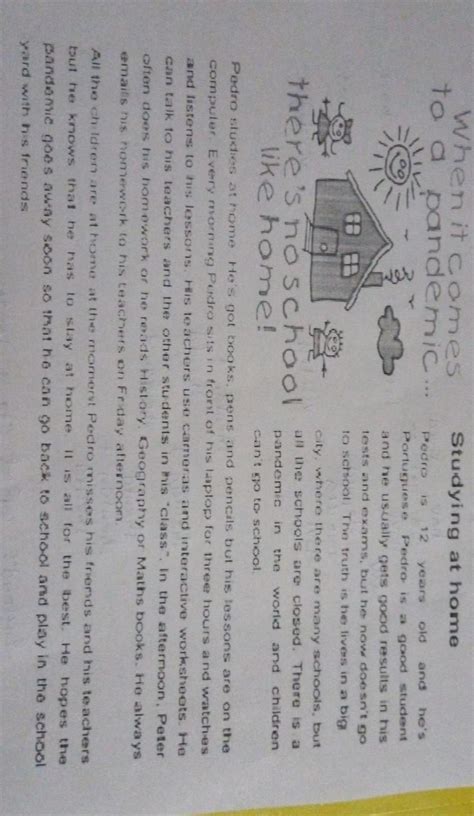 When it comes
to a pandemic...
there's no school
like home!
Studying at home
Pedro is 12 years old and he's
Portuguese. Pedro is a good student
and he usually gets good results in his
tests and exams, but he now doesn't go
to school. The truth is he lives in a big
city, where there are many schools, but
all the schools are closed. There is a
pandemic in the world and children
can't go to school.
Pedro studies at home. He's got books, pens and pencils but his lessons are on the
computer. Every morning Pedro sits in front of his laptop for three hours and watches
and listens to his lessons. His teachers use cameras and interactive worksheets. He
can talk to his teachers and the other students in his "class". In the afternoon, Peter
often does his homework or he reads History, Geography or Maths books. He always
emails his homework to his teachers on Friday afternoon.
All the children are at home at the moment. Pedro misses his friends and his teachers
but he knows that he has to stay at home. It is all for the best. He hopes the
pandemic goes away soon so that he can go back to school and play in the school
yard with his friends.